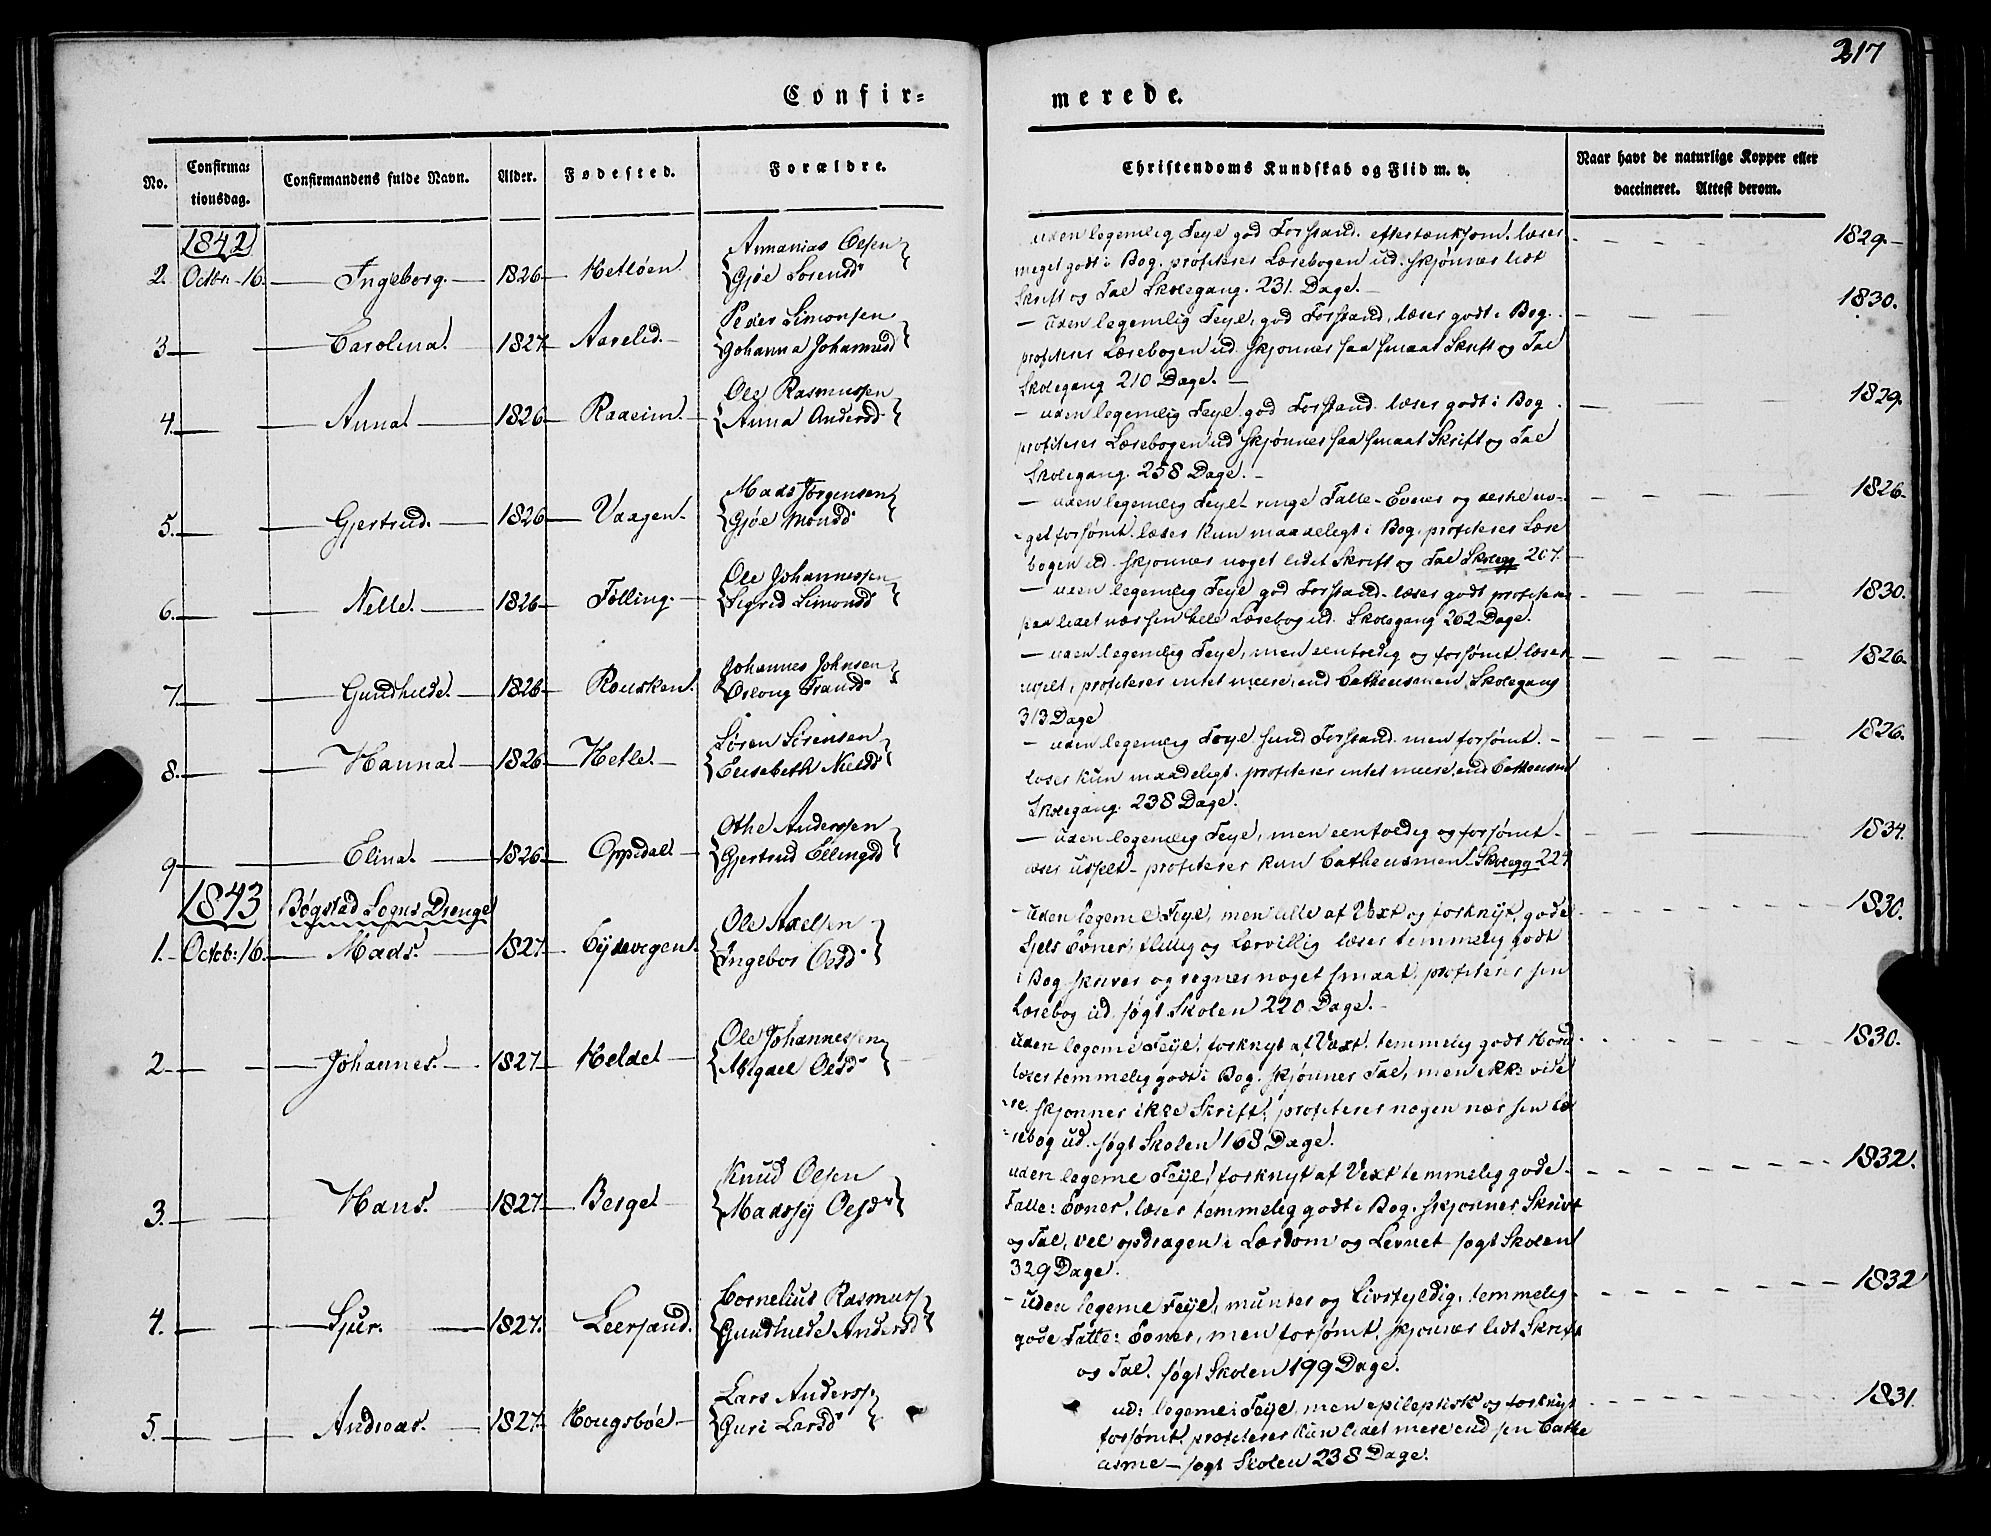 217
Confir-
merede.
No.
Confirma-
tionsdag.
Confirmandens fulde Navn.
Alder.
Fødested.
Forældre.
Christendoms Kundskab og Flid m. v.
Naar havt de naturlige Kopper eller
vaccineret. Attest derom.
1842
2. Octbr 16. Ingeborg. 1826 Hetløen Annanias Olsen
Gjøe Sørensd
uden legemlig Feyl god Forstand. eftertænksom. læser
meget godt i Bog. profiterer Læsebogen ud. skjønner lidt
Skrift og Tal Skolegang. 231. Dage.
1829.
3 Carolina. 1827 Aarelid. Peder Simonsen
Johanna Johannesd
uden legemlig Feyl, god Forstand, læser godt i Bog.
profiterer Læsebogen ud. skjønner saa smaat Skrift og Tal
Skolegang 210 Dage.
1830.
4. Anna 1826 Raaeim. Ole Rasmussen
Anna Andersd
uden legemlig Feyl god Forstand læser godt i Bog
profiterer Læsebogen ud skjønner saa smaat Skrift og Tal
Skolegang. 258 Dage.
1829.
5. Gjertrud. 1826 Vaagen. Mads Jørgensen
Gjøe Monsd
uden legemlig Feyl ringe Fatte-Evner og derhos no-
get forsømt. læser kun maadeligt i Bog. profiterer Læse
bogen ud. skjønner noget lidet Skrift og Tal Skolegg 207.
1826.
6. Nille. 1826 Tølling. Ole Johannessen
Sigrid Simonsd
uden legemlig Feyl god Forstand. læser godt profiterer
paa lidet nær sin hele Læsebog ud. Skolegang 262 Dage.
1830.
7. Gundhilde. 1826 Rousken. Johannes Johnsen
uden legemlig Feyl, men eenfoldig og forsømt. læser
uselt, profiterer intet meere, end Cathecismen Skolegang
313 Dage
1826.
8. Hanna 1826 Hetle. Søren Sørensen
Elisebeth Nielsd
uden legemlig Feyl sund Forstand men forsømt.
læser kun maadeligt. profiterer intet meere, end Cathecismen
Skolegang. 238 Dage.
1826.
9 Elina. 1826 Oppedal. Othe Anderssen
Gjertrud Ellingsd
uden legemlig Feyl, men eenfoldig og forsømt
læser uselt profiterer kun Cathecismen Skolegg 224
1834.
1843 Bøgstad Sogns Drenge
1. Octob: 16. Mads. 1827 Eydevigen. Ole Axelsen
Ingebor Olsd
uden legeme Feyl, men lille af Vext og forknyt, gode
Sjels Evner, flittig og lærvillig læser temmelig godt
i Bog skriver og regner noget smaat, profiterer sin
Læsebog ud. søgt Skolen 220 Dage.
1830.
2 Johannes. 1827 Heldal Ole Johannessen
Abigael Olsd
uden legeme Feyl, forknyt af Vext, temmelig godt Hoved
læser temmelig godt i Bog. skjønner Tal, men ikke vide
re skjønner ikke Skrift, profiterer nogen nær sin Læ
sebog ud. søgt Skolen 168 Dage.
1830.
3. Hans. 1827. Berge Knud Olsen
Madssy Olsd
uden legeme Feyl, forknyt af Vext temmelig gode
Fatte: Evner, læser temmelig godt i Bog. skjønner Skrivt
og Tal, vel opdragen i Lærdom og Levnet søgt Skolen
329 Dage.
1832.
4. Sjur. 1827. Leersand. Cornelius Rasmuss
Gundhilde Andersd
uden legeme Feyl, munter og Livsfyldig, temmelig
gode Fatte: Evner, men forsømt, skjønner lidt Skrift
og Tal. søgt Skolen 199 Dage.
1832
5. Andreas. 1827 Hougsbøe Lars Anderss
Guri Larsd
ud: legeme: Feyl men epileptisk og forknyt
forsømt. profiterer kun lidet mere end sin Cathe
cisme søgt Skolen 238 Dage.
1831.